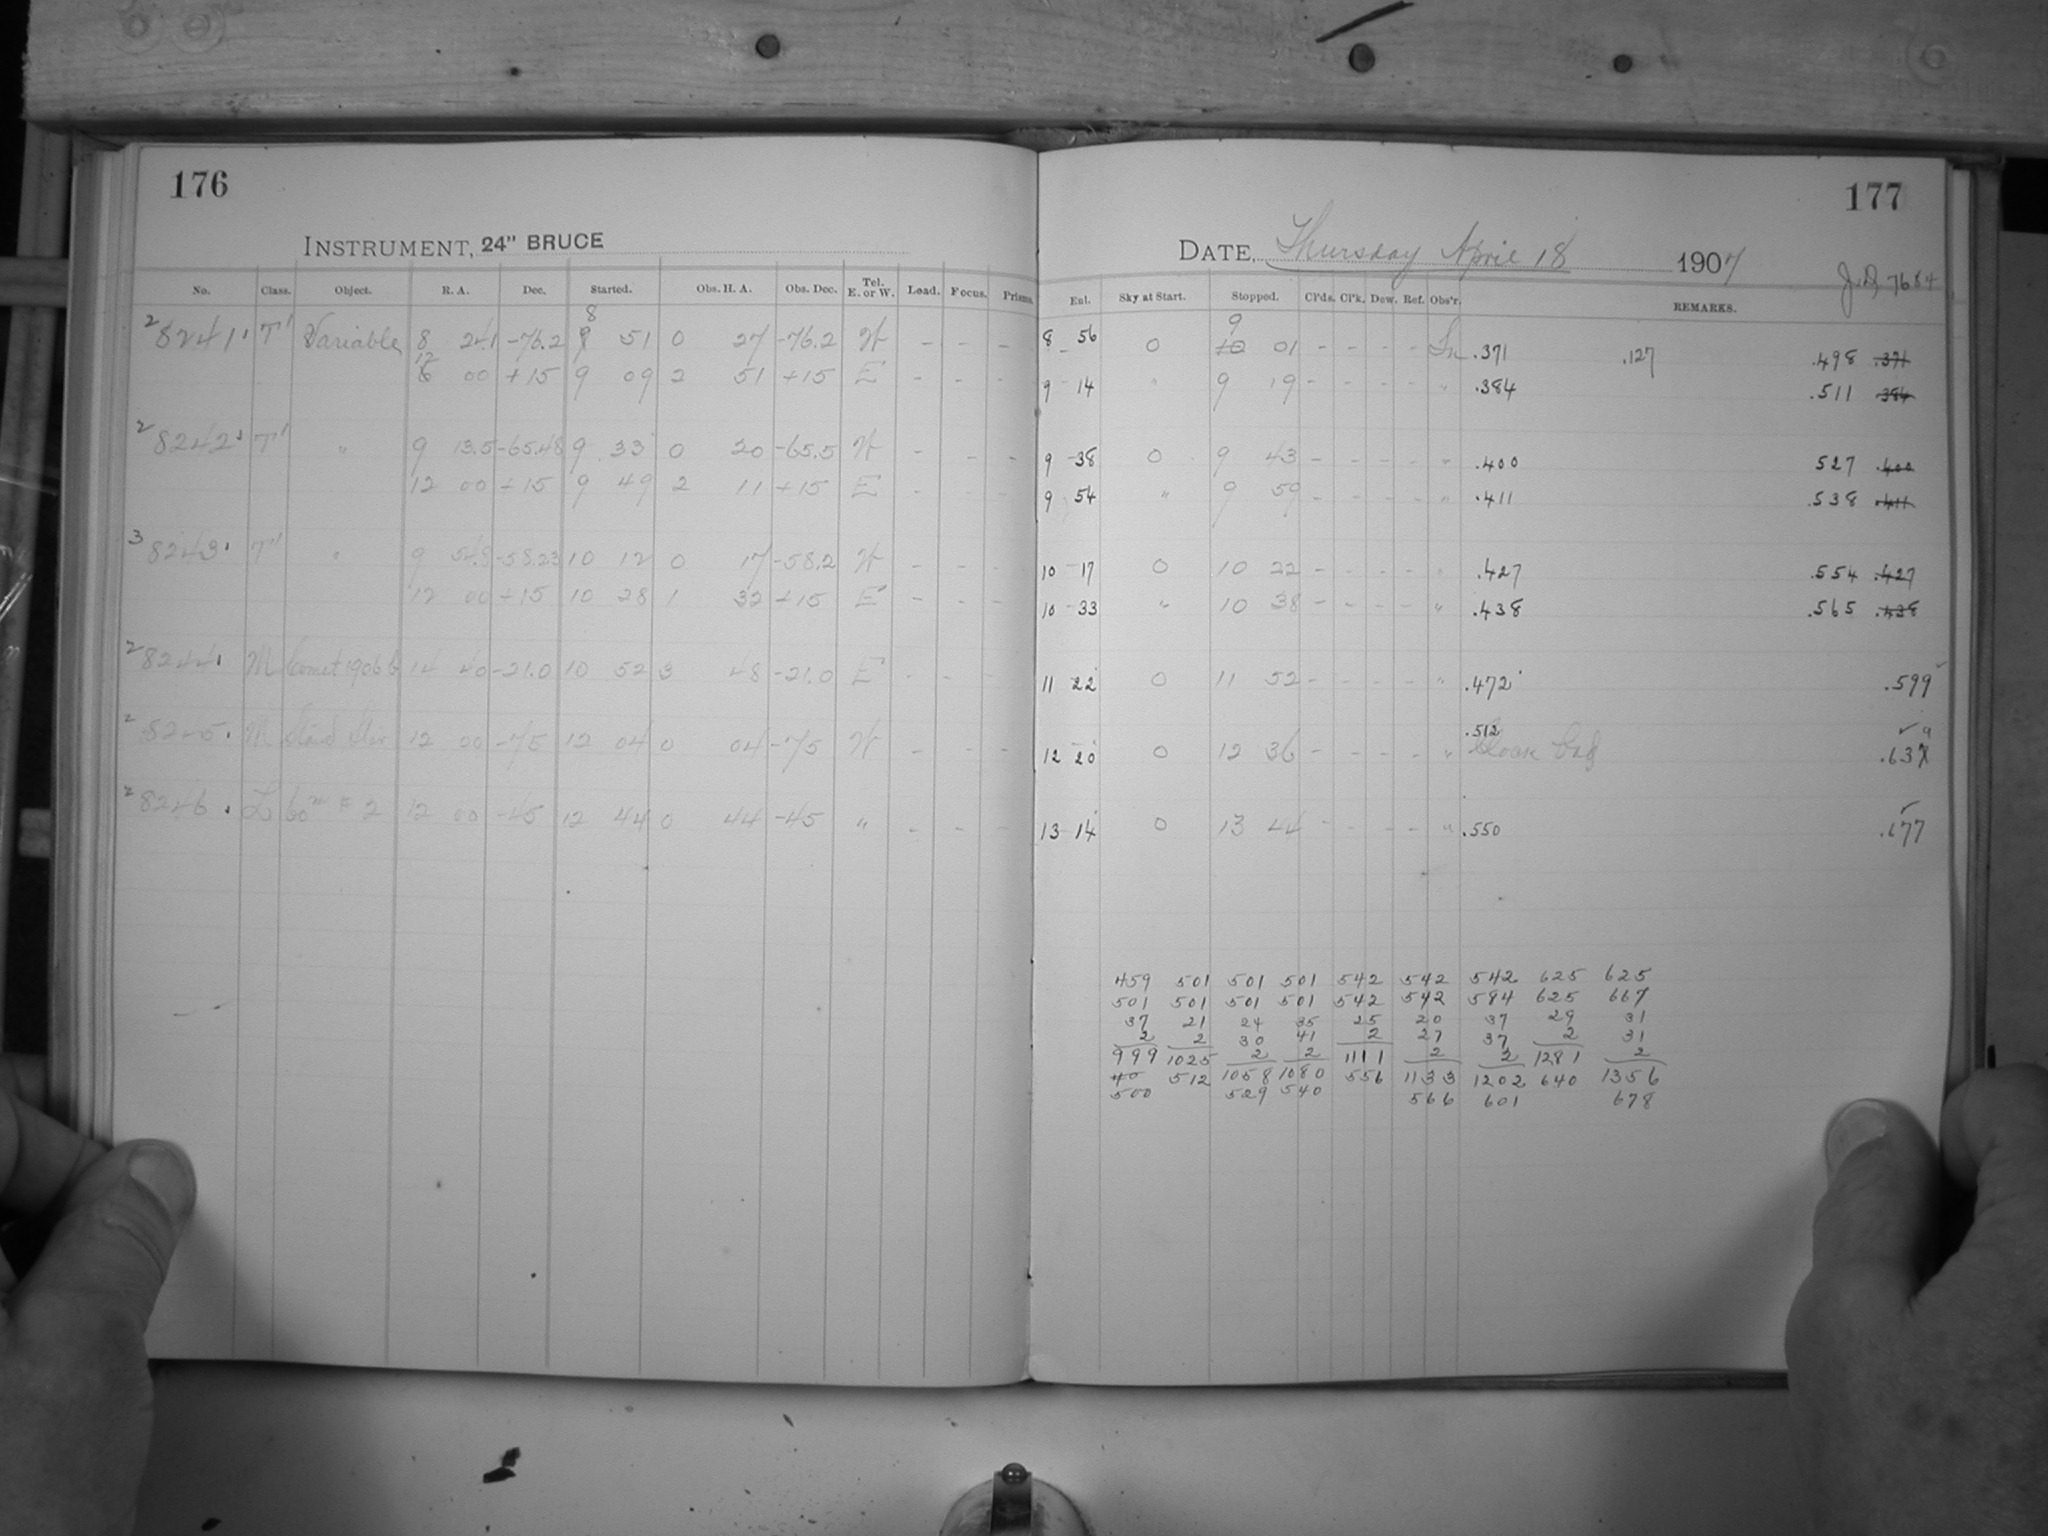 176
INSTRUMENT, 24" BRUCE
No. Class. Object. R. A. Dec. Started. Obs. H. A. Obs. Dec. Tel. E. or W. Load. Focus. Prisms.
8
2 8241. T' Variable 8 24.1 -76.2 9 51 0 27 -76.2 W - - -
12
6 00 +15 9 09 2 51 +15 E - - -
2 8242. T' " 9 13.5 -65.48 9 33 0 20 -65.5 W - - -
12 00 +15 9 49 2 11 +15 E - - -
3 8243. T' " 9 54.8 -58.23 10 12 0 17 -58.2 W - - -
12 00 +15 10 28 1 32 +15 E - - -
2 8244. M Comet 1906 b 14 40 -21.0 10 52 3 48 -21.0 E - - -
2 8245. M Stand Star 12 00 -75 12 04 0 04 -75 W - - -
2 8246. L 60m # 2 12 00 -45 12 44 0 44 -45 " - - -
177
DATE, Thursday April 18 1907
J.D. 7684
Ent. Sky at Start. Stopped. Cl'ds. Cl'k. Dew. Ref. Obs'r. REMARKS.
9
8 56 0 10 01 - - - - .371 .127 .498 .371
9 14 " 9 19 - - - - " .384 .511 .384
9 38 0 9 43 - - - - " .400 527 .400
9 54 " 9 59 - - - - " .411 .538 .411
10 17 0 10 22 - - - - " .427 .554 .427
10 33 " 10 38 - - - - " .438 .565 .438
11 22 0 11 52 - - - - " .472 .599
.512
12 20 0 12 36 - - - - " .637 9
13 14 0 13 44 - - - - " .550 .677
459 501 501 501 542 542 542 625 625
501 501 501 501 542 542 584 625 667
37 21 24 35 25 20 37 29 31
2 2 30 41 2 27 37 2 31
999 1025 2 2 1111 2 2 1281 2
40 512 1058 1080 556 1133 1202 640 1356
500 529 540 566 601 678